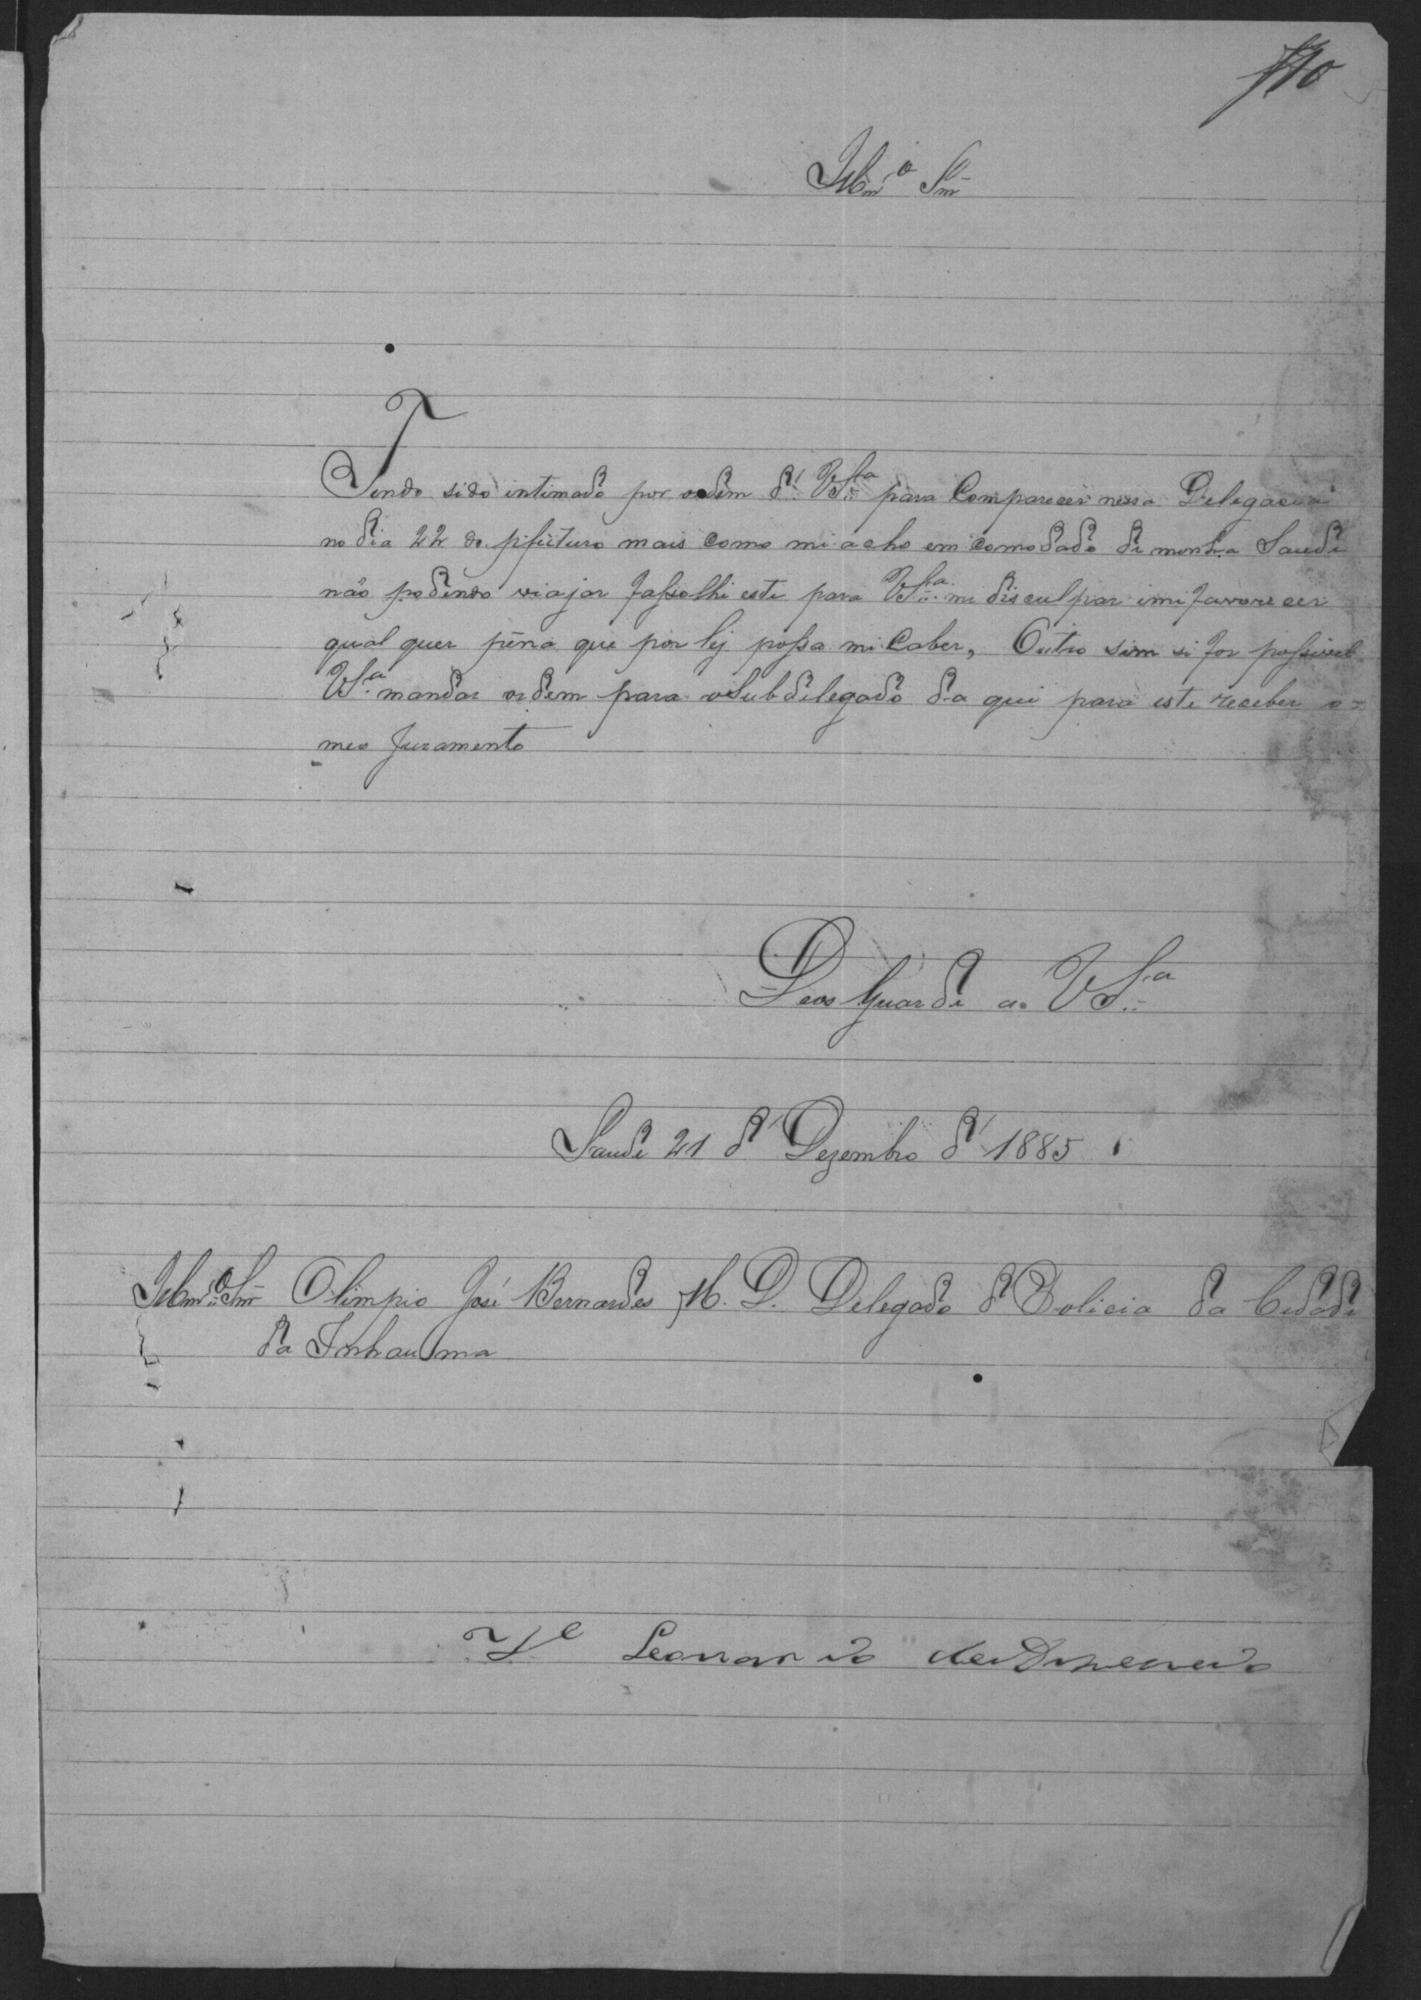 Illmº Snr
Tendo sido intimado por ordem d' VSª para Comparecer nessa Delegacia
no dia 22 do p futuro mais como mi acho emcomodado di minha Saudi
não podendo viajar fasso lhi esti para VSª mi disculpar imi favorecer
qual quer pena que por lej possa mi Caber, Outro sim si for possivel
VSª mandar ordem para o Subdilegado da qui para esti receber o
meo Juramento
Deos Guardi a VSª
Saudi 21 d' Dezembro d' 1885
Illmº Snr Olimpio José Bernardes M. D. Delegado d' Policia da Cidadi
da Inhauma
Leonardo